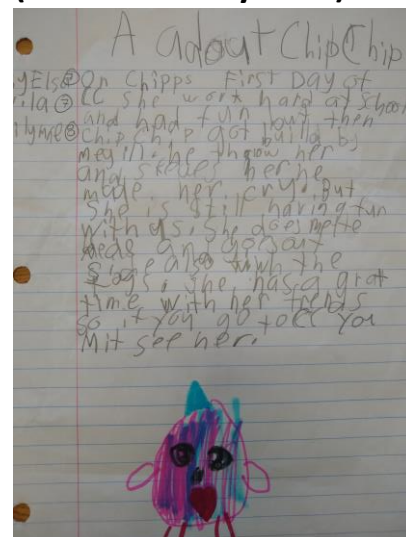 A adout ChipChip
yElsa② On Chipps First Day of
ila⑦ CC she work hard at School
ilyme⑧ and had fun but then
Chip Chip got build by
meg in. he throw her
and skeves her he
made her cry. But
She is still having fun
with us. She does mette
deas and goes out
Side and with the
Logs. She has a grat
time with her frends
so if you go to CC you
Mit see her.